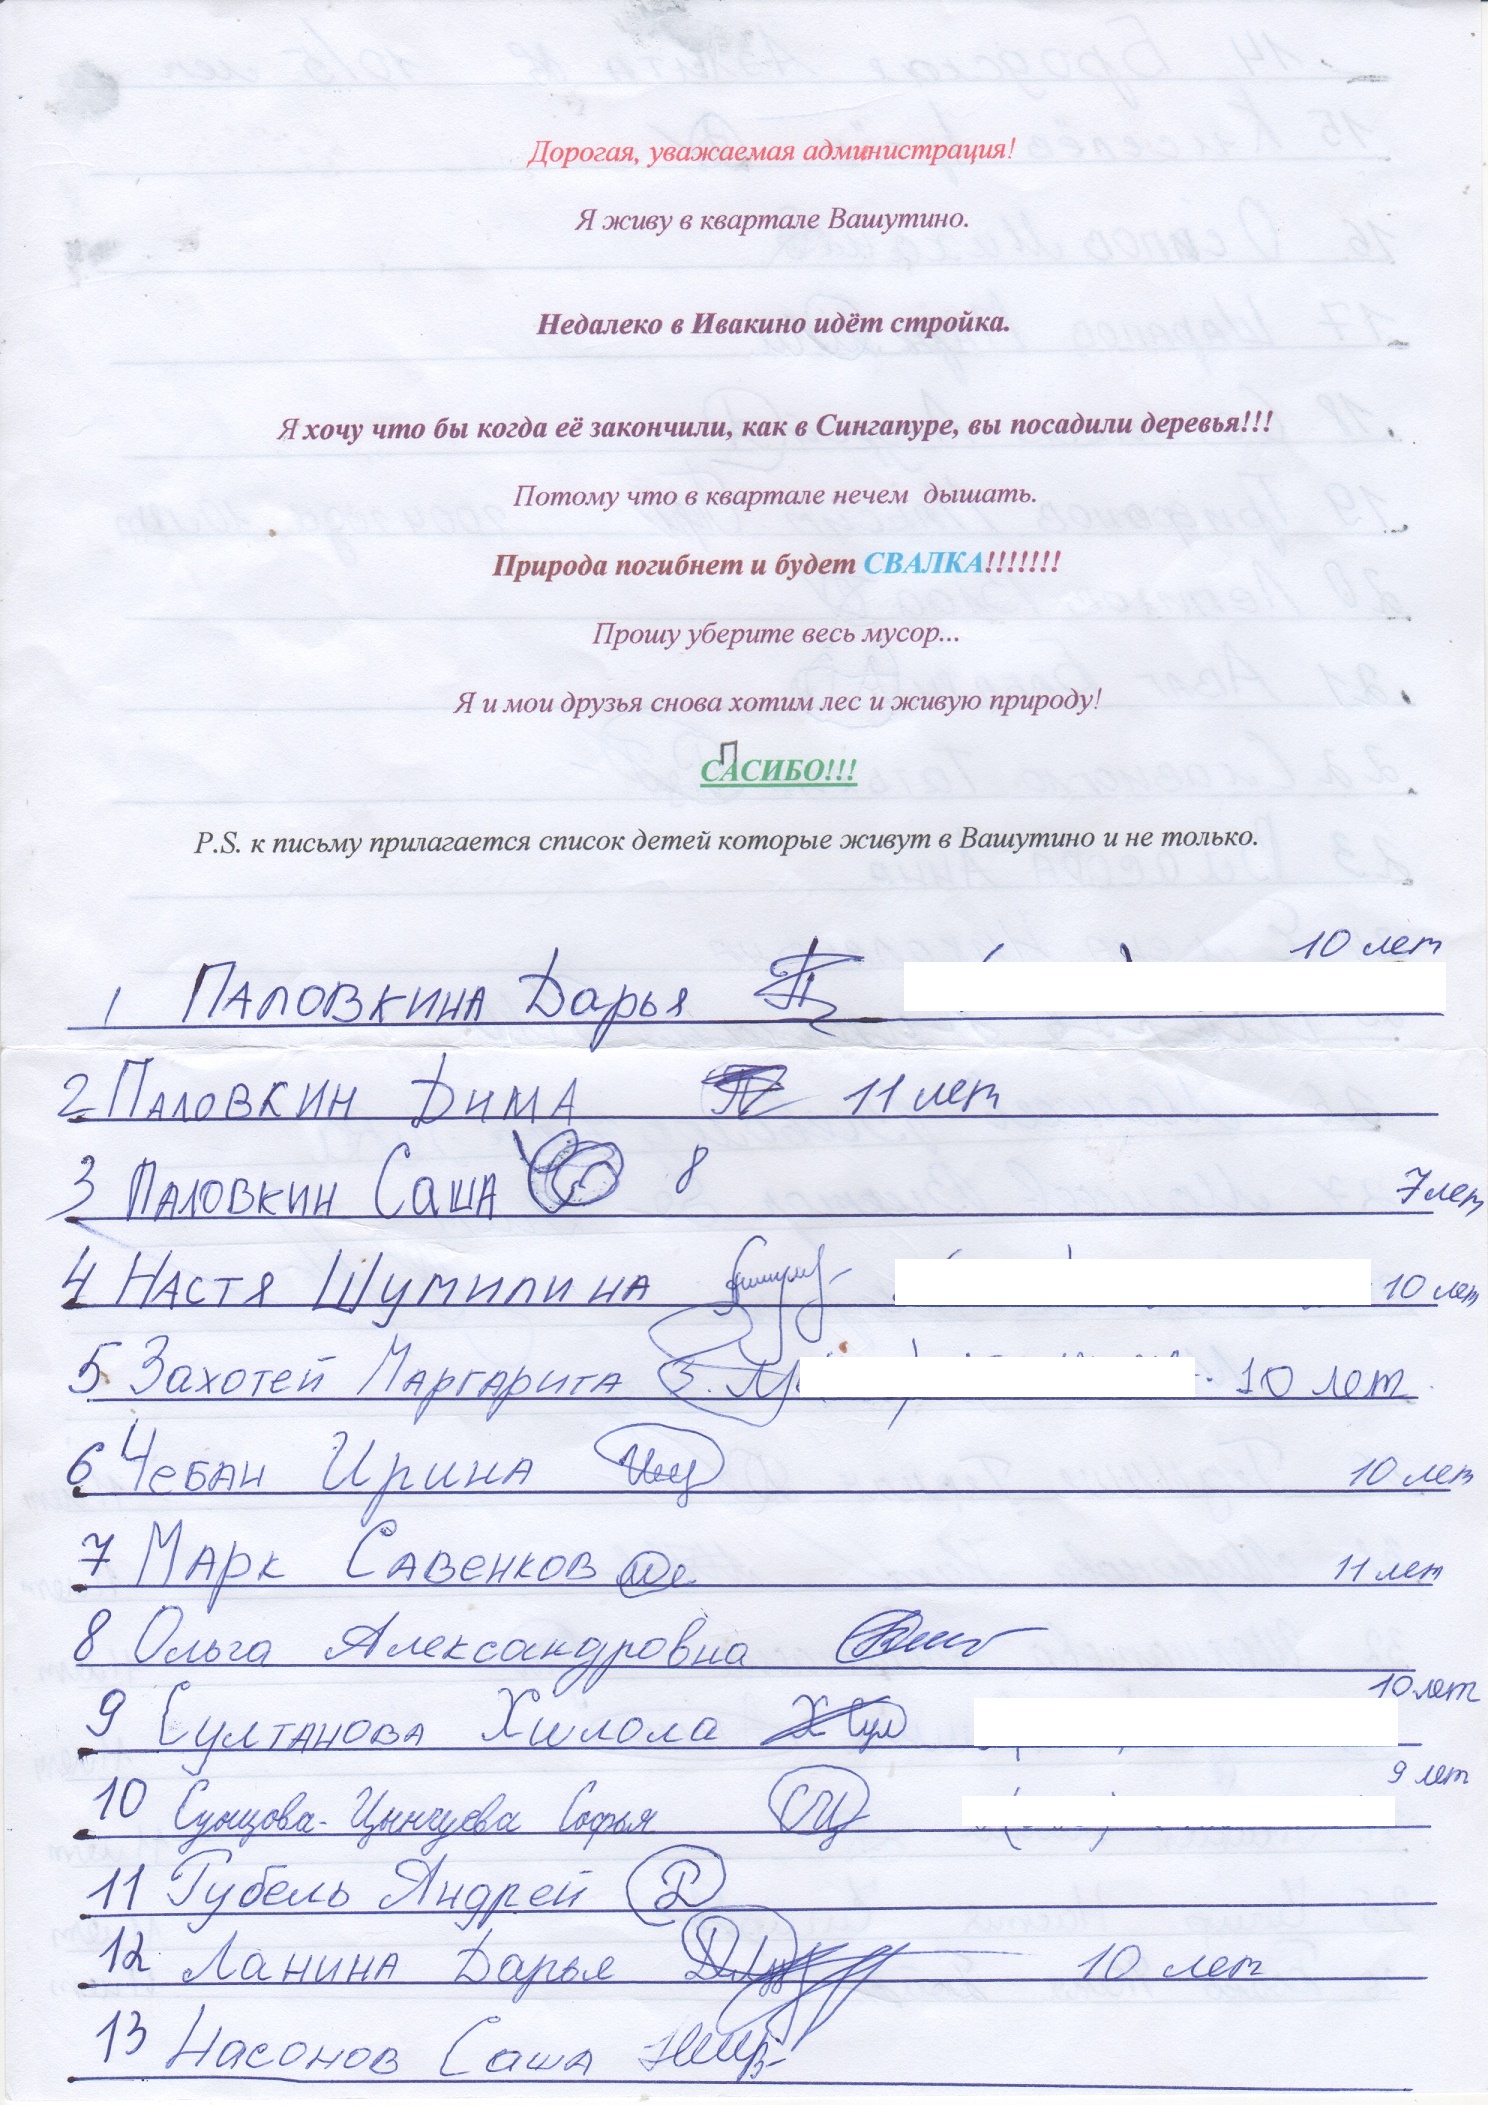 Дорогая, уважаемая администрация!
Я живу в квартале Вашутино.
Недалеко в Ивакино идёт стройка.
Я хочу что бы когда её закончили, как в Сингапуре, вы посадили деревья!!!
Потому что в квартале нечем дышать.
Природа погибнет и будет СВАЛКА!!!!!!!
Прошу уберите весь мусор...
Я и мои друзья снова хотим лес и живую природу!
СПАСИБО!!!
P.S. к письму прилагается список детей которые живут в Вашутино и не только.
1 Паловкина Дарья 10 лет
2 Паловкин Дима 11 лет
3 Паловкин Саша 8 7 лет
4 Настя Шумилина 10 лет
5 Захотей Маргарита 10 лет
6 Чебан Ирина 10 лет
7 Марк Савенков 11 лет
8 Ольга Александровна
9 Султанова Хилола 10 лет
10 Сунцова- Софья 9 лет
11 Губель Андрей
12 Ланина Дарья 10 лет
13 Насонов Саша